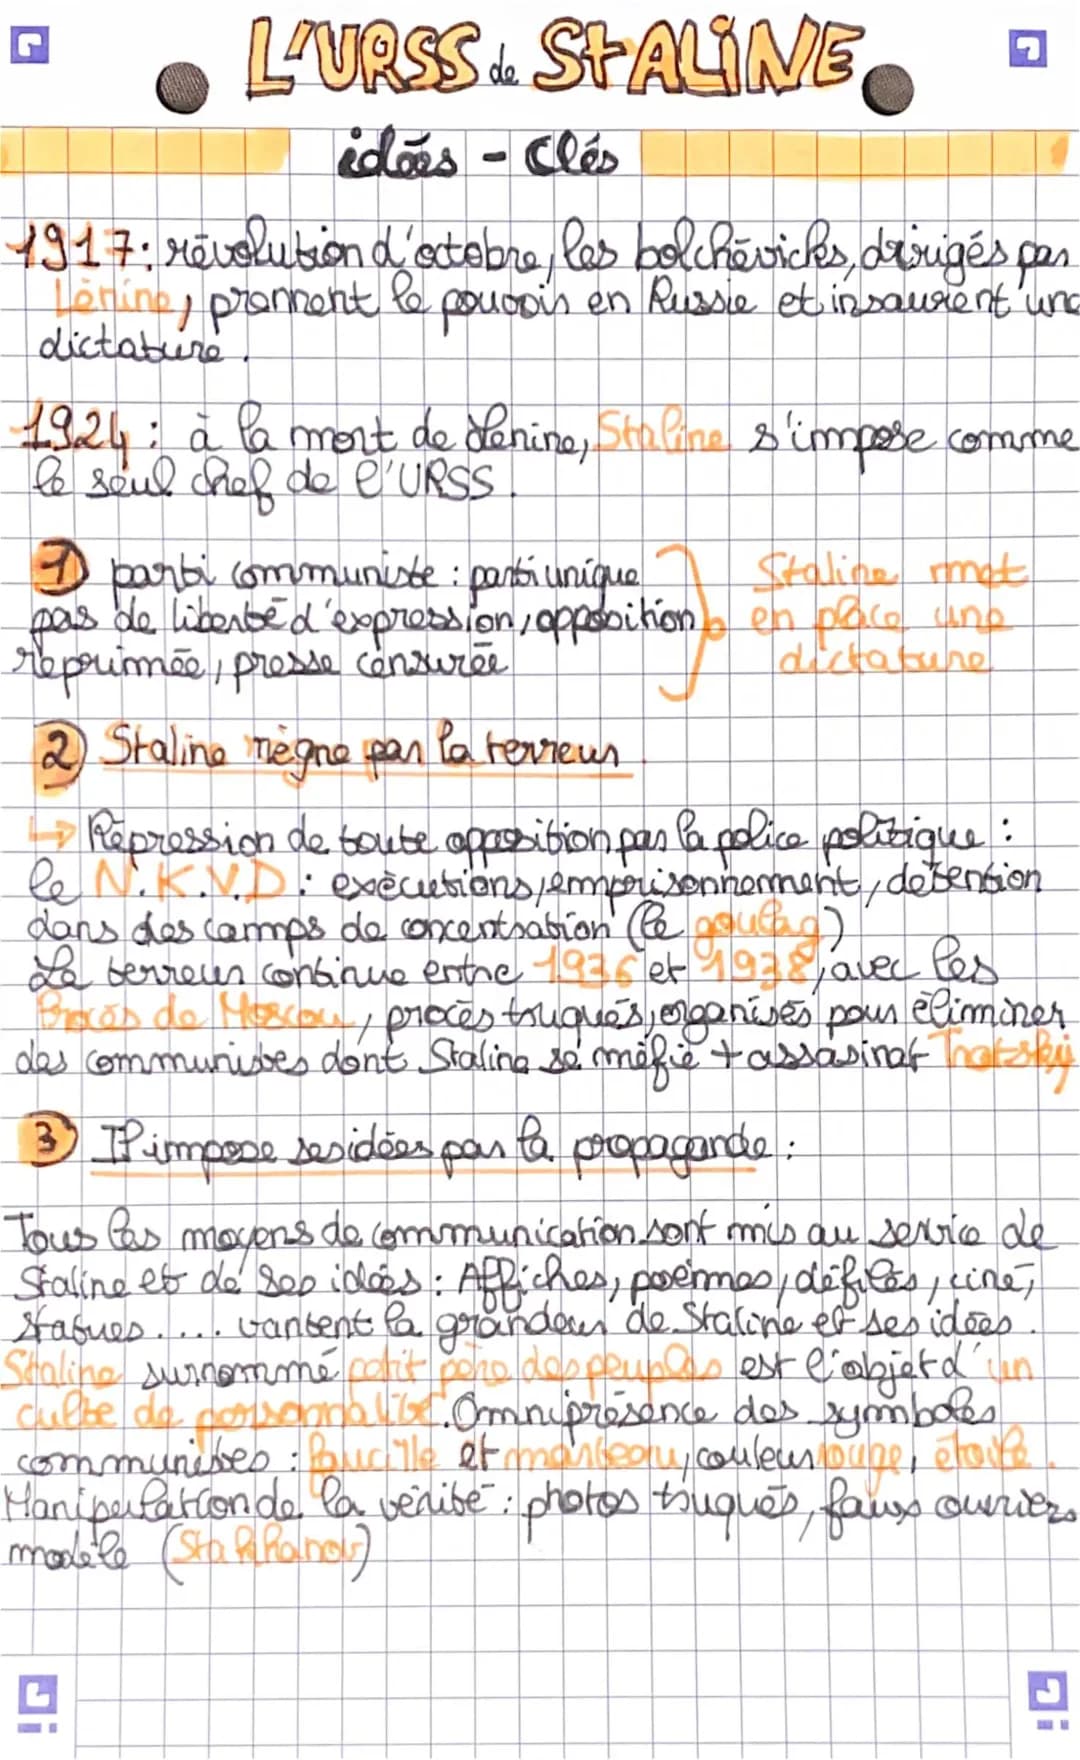 L'URSS de STALINE
idées - clés
1917: révolution d'octobre, les bolchévicks, dirigés par
Lénine, prennent le pouvoir en Russie et insaurent une
dictature.
1924 : à la mort de Lenine, Staline s'impose comme
le seul chef de l'URSS.
1) parti communiste : parti unique
pas de liberté d'expression, opposition
réprimée, presse censurée
Staline met
en place une
dictature
2) Staline règne par la terreur.
↳ Répression de toute opposition par la police politique :
le N.K.V.D : exécutions, emprisonnement, détention
dans des camps de concentration (le goulag)
La terreur continue entre 1936 et 1938, avec les
Procès de Moscou, procès truqués, organisés pour éliminer
des communistes dont Staline se méfie + assasinat Trotsky
3) Il impose ses idées par la propagande :
Tous les moyens de communication sont mis au service de
Staline et de ses idées : Affiches, poèmes, défilés, ciné,
statues.... vantent la grandeur de Staline et ses idées.
Staline surnommé petit père des peuples est l'objet d'un
culte de personnalité. Omniprésence des symboles
communistes : faucille et marteau, couleur rouge, étoile.
Manipulation de la vérité : photos truqués, faux ouvriers
modèle (Stakhanov)